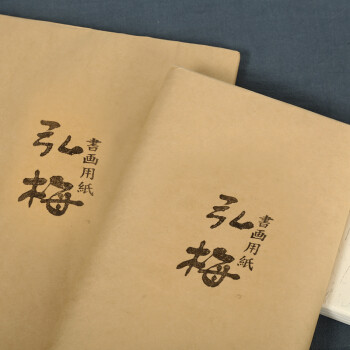 弘梅
書画用紙
弘梅
書画用紙